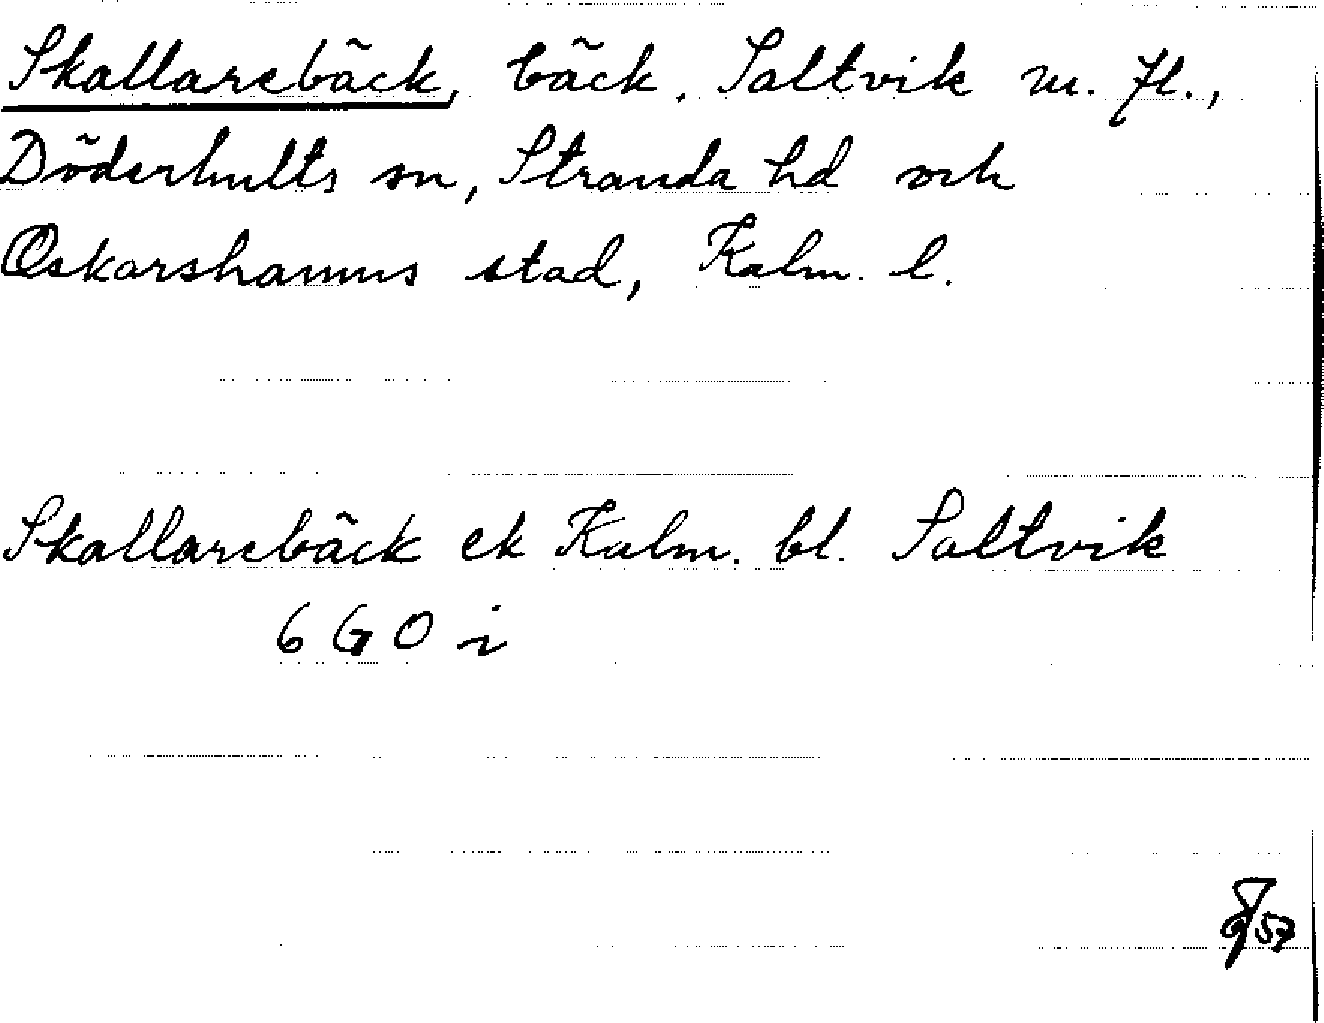 Skallarebäck, bäck. Saltvik m. fl.,
Döderhults sn, Stranda hd och
Oskarshamns stad, Kalm. l.
Skallarebäck ek Kalm. bl. Saltvik
6 G O i
57